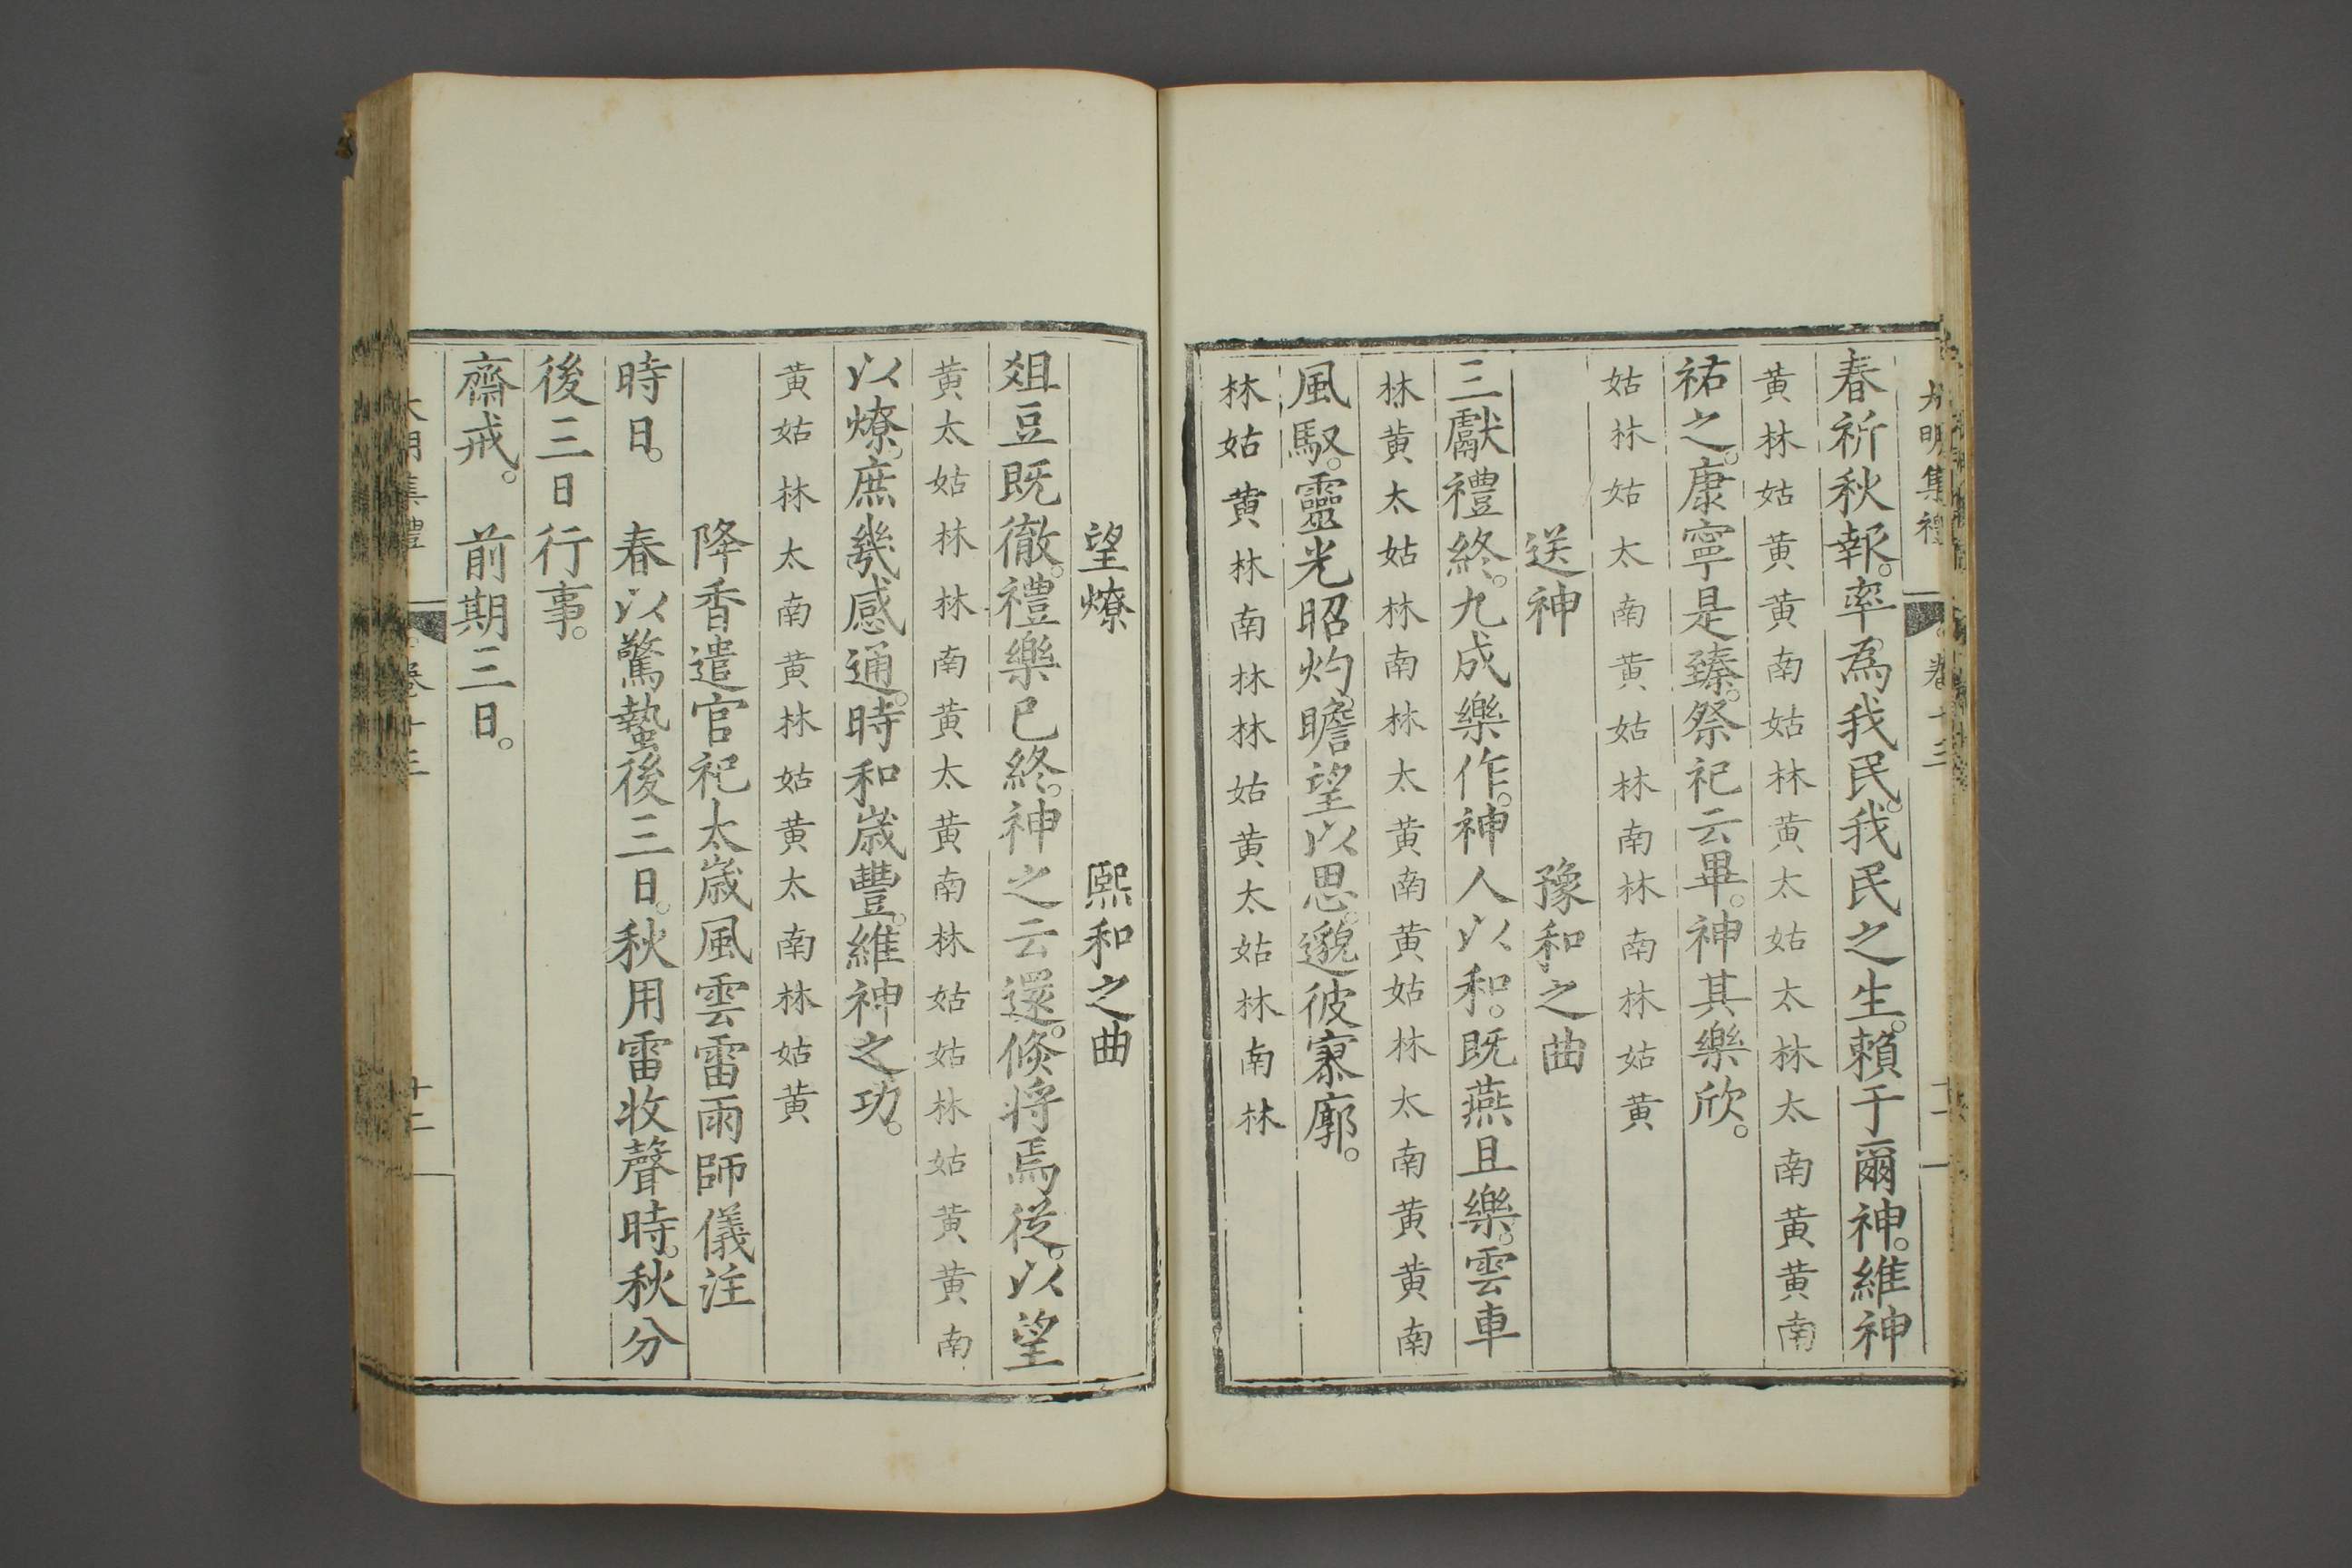 大明集禮 卷十三 十一
春祈秋報。率為我民。我民之生。賴于爾神。維神
黄林姑黄黄南姑林黄太姑太林太南黄黄南
祐之。康寧是臻。祭祀云畢。神其樂欣。
姑林姑太南黄姑林南林南林姑黄
送神 豫和之曲
三獻禮終。九成樂作。神人以和。既燕且樂。雲車
林黄太姑林南林太黄南黄姑林太南黄黄南
風馭。靈光昭灼。瞻望以思。邈彼寥廓。
林姑黄林南林林姑黄太姑林南林
望燎 熙和之曲
俎豆既徹。禮樂已終。神之云還。倏將焉從。以望
黄太姑林林南黄太黄南林姑姑林姑黄黄南
以燎。庶幾感通。時和歲豐。維神之功。
黄姑林太南黄林姑黄太南林姑黄
降香遣官祀太歲風雲雷雨師儀注
時日。 春以驚蟄後三日。秋用雷收聲時。秋分
後三日行事。
齋戒。 前期三日。
大明集禮 卷十三 十二